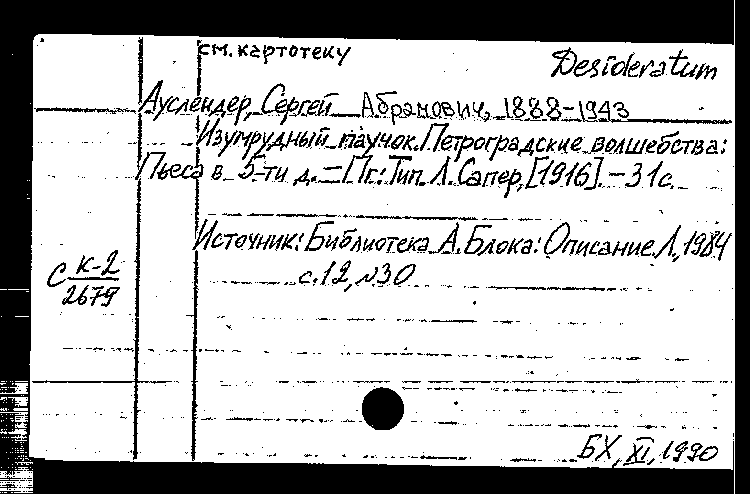 см. картотеку
Desideratum
Ауслендер, Сергей Абрамович, 1888-1943
Изумрудный паучок. Петроградские волшебства:
Пьеса в 5-ти д. – Пг.: Тип. Л. Сапер, [1916]. – 31 с.
Источник: Библиотека А. Блока: Описание. Л., 1984
с. 12, №30
С К-2
2679
БХ, XI, 1990